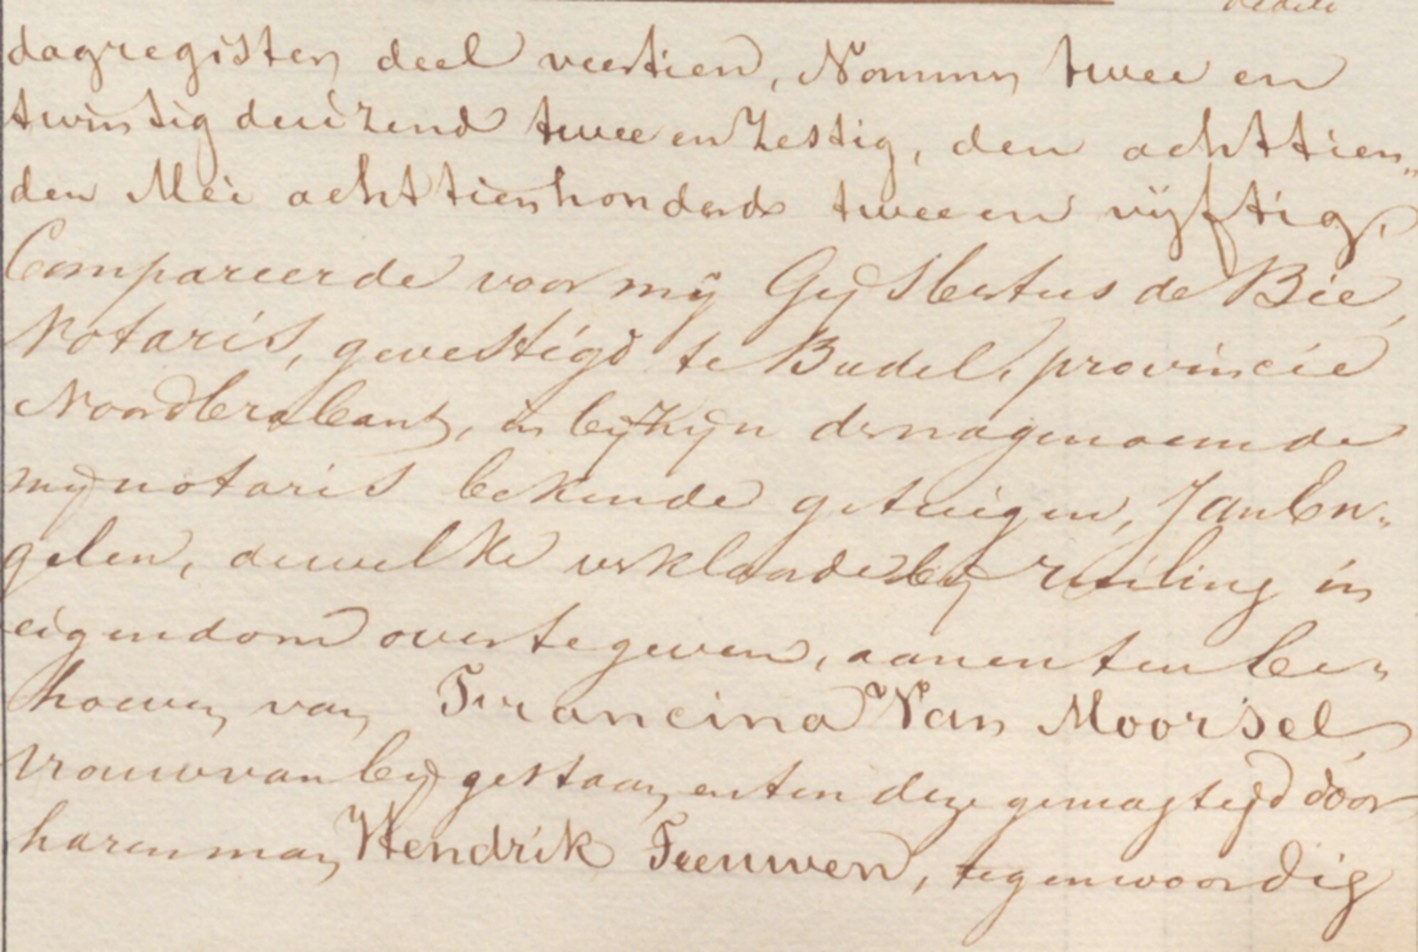 dagregister deel veertien, Nommer twee en
twintig duizend twee en zestig, den achttien„
den Mei achttienhonderd twee en vijftig,
Compareerde voor mij Gijsbertus de Bie,
Notaris, gevestigd te Budel, provincie
Noordbrabant, in bijzijn der nagenoemde
mij notaris bekende getuigen, Jan En„
gelen, dewelke verklaarde bij ruiling in
eigendom overtegeven, aan en ten be„
hoeven van Francina Van Moorsel,
vrouw van bijgestaan en ten deze gemagtigd door
haren man Hendrik Teeuwen, tegenwoordig